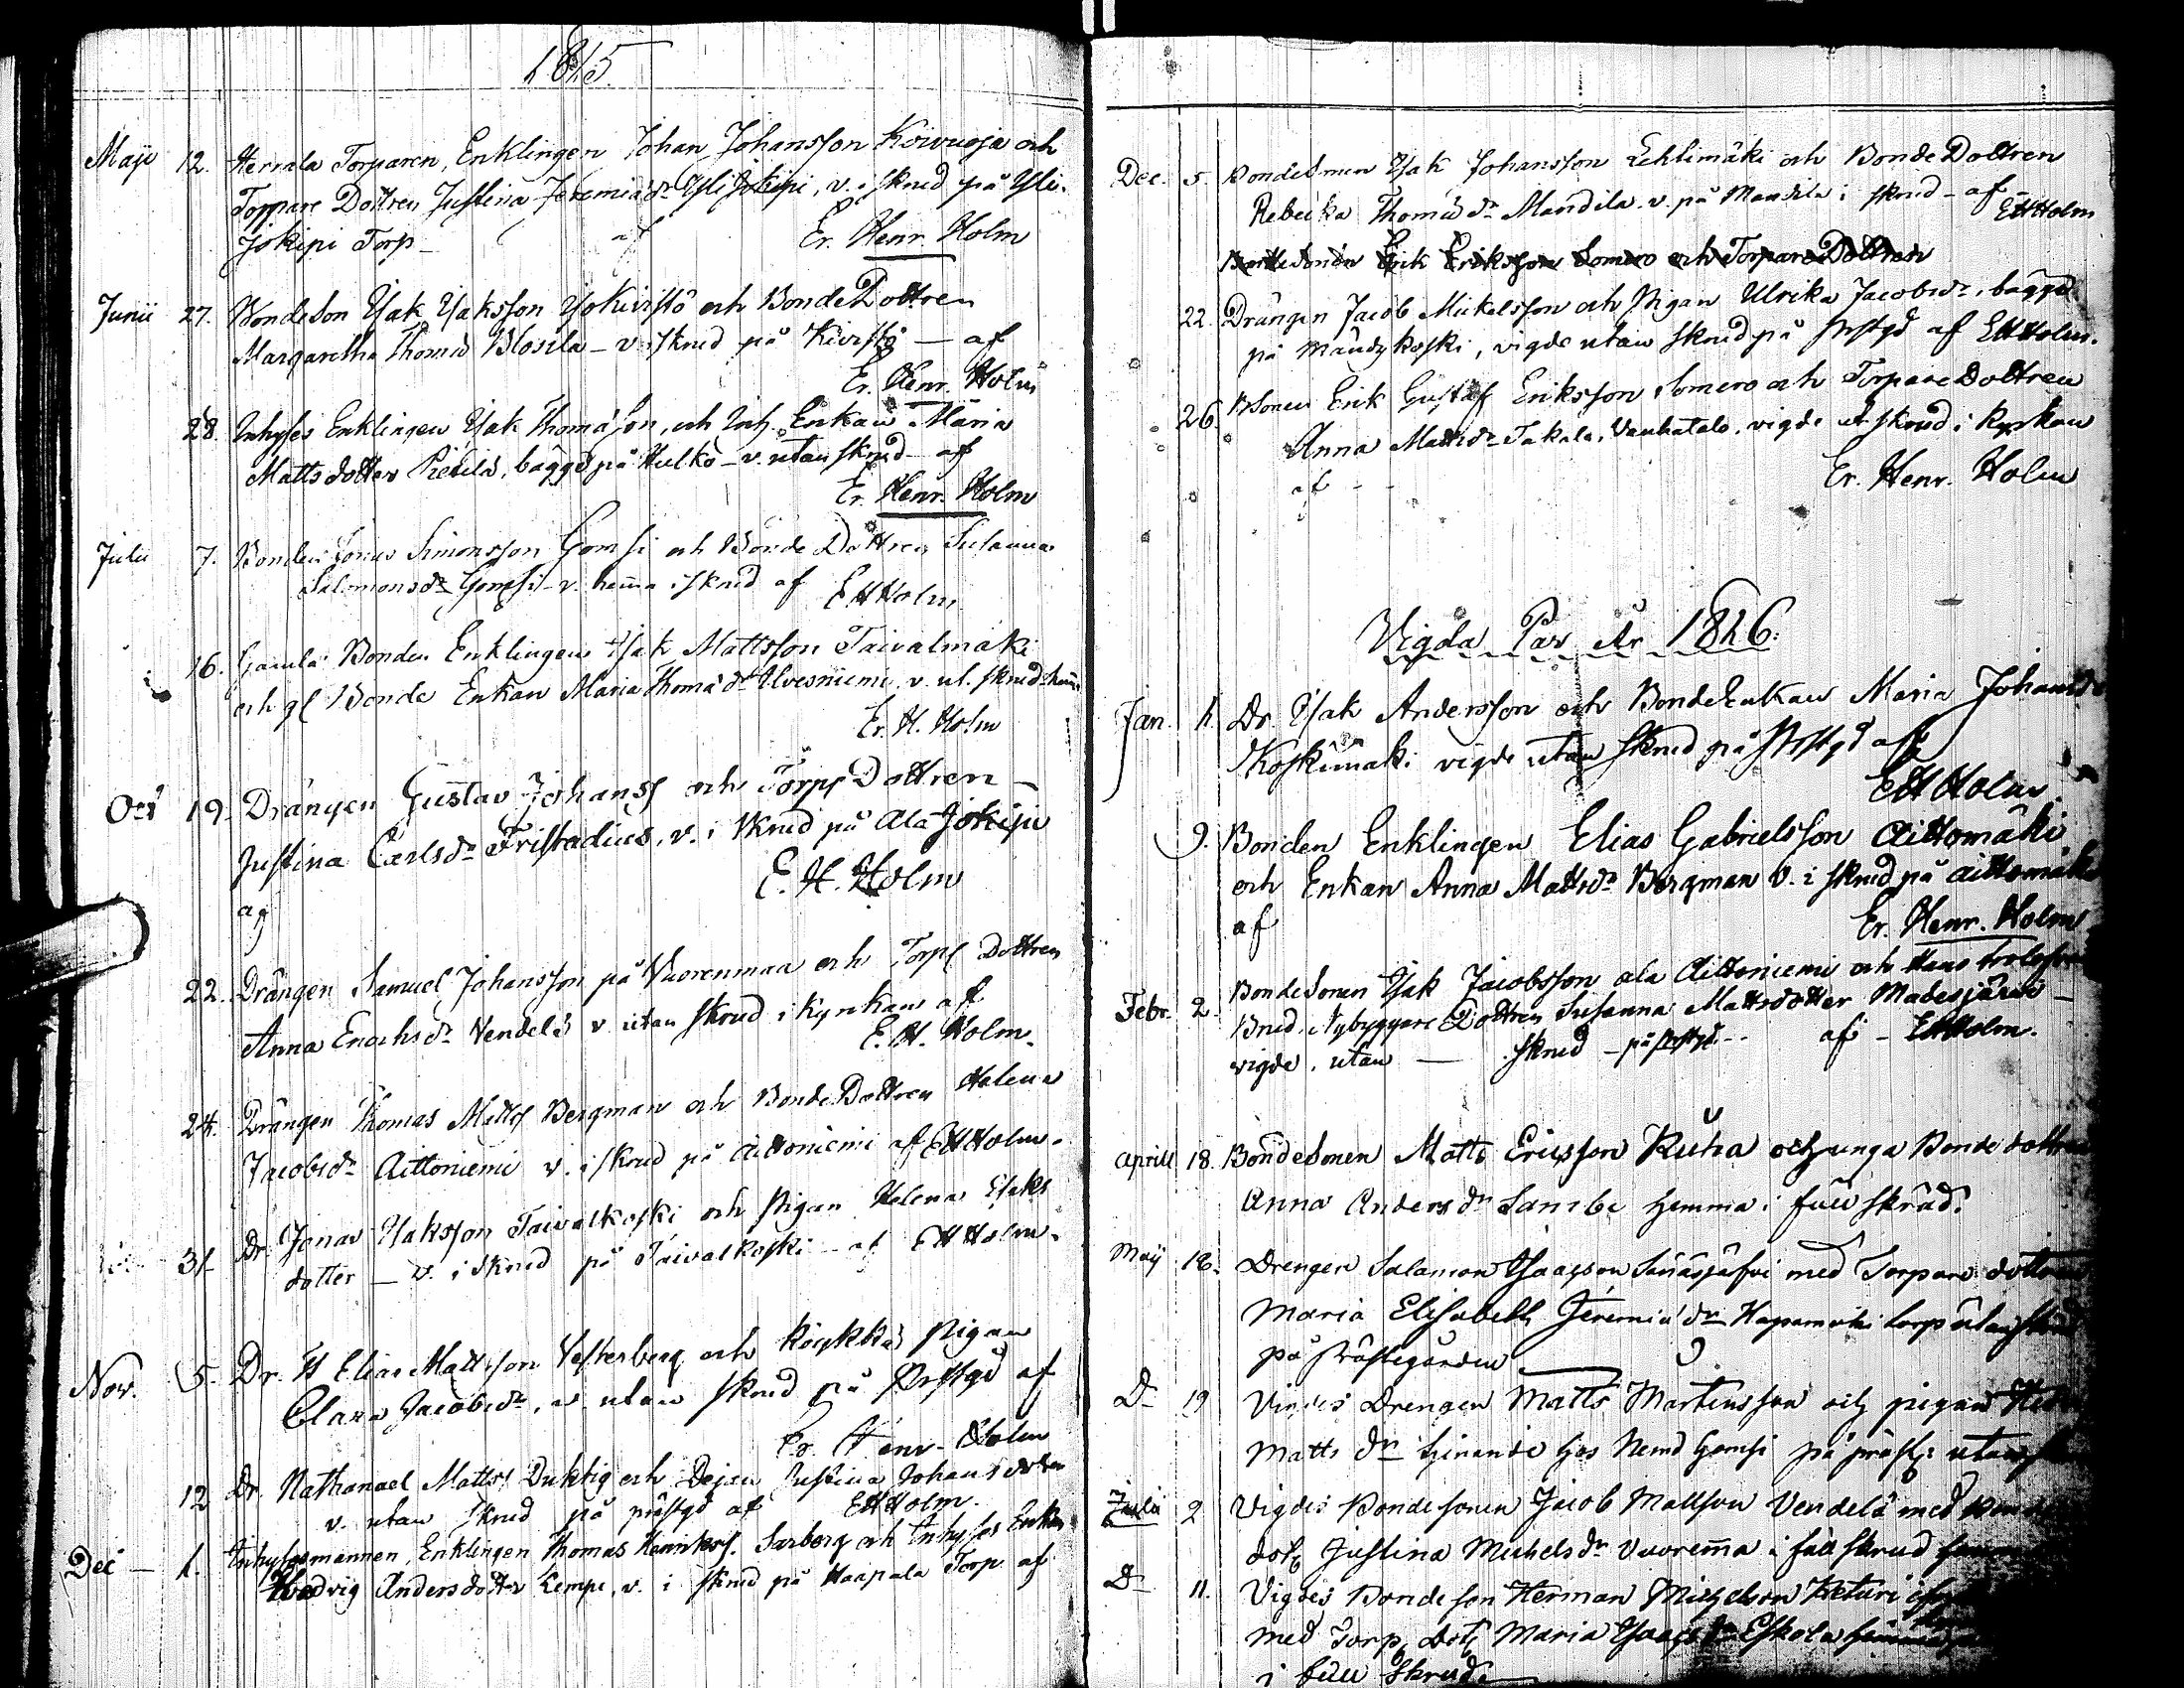 1815.
Maji 12. Herrala Torparen, Enklingen Johan Johansson Koivuoja och
Torpare Dottren Justina Jeremiæ dr Yli Jokipi, v. i skrud på Yli-
Jokipi Torp — af Er. Henr. Holm
Junii 27. Bondeson Isak Isaksson IsoKivistö och BondeDottren
Margaretha Thomæ Blosila — v. i skrud på Kivistö — af
Er. Henr. Holm
28. Inhyses Enklingen Isak Thomæson, och Inh. Enkan Maria
Matts dotter, bägge på Hulko — v. utan skrud af
Er. Henr. Holm
Julii 7. Bonden Jonas Simonsson Gomsi och Bonde Dottren Susanna
Salomonsdr Gomsi — v. hema i skrud af EHHolm
16. Gamla Bonden Enklingen Isak Mattsson Taivalmäki
och gl Bonde Enkan Maria Thomæ dr Ulvesniemi v. ut. skrud hema
Er. H. Holm
Oct 19. Drängen Gustav Johanss och Torps Dottren —
Justina Carlsdr Fristadius, v. i skrud på Ala Jokipi
af E. H. Holm
22. Drängen Samuel Johansson på Vuorenmaa och Torps Dottren
Anna Enochsdr Vendelä v. utan skrud i Kyrkan af
E. H. Holm.
24. Drängen Thomas Matts Bergman och BondeDottren Helena
Jacobsdr Aittoniemi v. i skrud på Aittoniemi af EHHolm.
31. Dr Jonas Isaksson Taivalkoski och Pigan Helena Isaks
dotter — v. i skrud på Taivalkoski — af EHHolm.
Nov. 5. Dr. Elias Mattsson Vesterberg och Köykkä Pigan
Clara Jacobsdr, v utan skrud på Prstgd af
Er. Henr. Holm
12 Dr. Nathanael Matts Duktig och Dejan Justina Johansdotter
v. utan skrud på prästgd af EHHolm.
Dec — 1. Inhysesmannen, Enklingen Thomas Henrikss. Sarberg och Inhyses Enkan
Hedvig Andersdotter Kempe, v. i skrud på Haapala Torp af
Dec. 5. Bondesonen Isak Johansson Lehtimäki och BondeDottren
Rebecka Thomædr Mandila. v. på Mandila i skrud — af EHHolm
Bondesonen Erik Eriksson Somero och TorpareDottren
22. Drängen Jacob Mickelsson och Pigan Ulrika Jacobsdr, bägge
på Mandykoski, vigde utan skrud på Prstgd af EHHolm.
26. BSonen Erik Gustaf Eriksson Somero och TorpareDottren
Anna Mattsdr Takala, Vanhatalo, vigde ut skrud i Kyrkan
af — Er. Henr. Holm
Vigda Par År 1816.
Jan. 1. Dr. Isak Andersson och BondeEnkan Maria Johansdr
Koskimäki vigde utan skrud på Prstgd af
EHHolm
9. Bonden Enklingen Elias Gabrielsson Aittomäki
och Enkan Anna Mattsdr Bergman v. i skrud på Aittomäki
af Er. Henr. Holm
Febr. 2. BondeSonen Isak Jacobsson ala Aittoniemi och Hans trolofvade
Brud NybyggareDottren Susanna Mattsdotter Madesjärvi —
vigde, utan — skrud — på Prstgd — af — EHHolm.
Aprill 18. Bondesonen Matts Ericsson Ruha och unga Bonde dottren
Anna Anders dr hemma i full skrud.
Maij 16. Drengen Salamon Isaacsson med Torpare dotter
Maria Elisabeth Jeremiæ dr torp utan skrud
på Prästegården
Do 19 Vigdes Drengen Matts Martensson och pigan
Matts dr tjenande hos Nemd Gomsi på präst: utan
Julii 2 Vigdes Bondesonen Jacob Mattson Vendelä med Bonde
dotr Justina Michelsdr Vuorema i full skrud
Do 11. Vigdes Bondeson Herman Michelson
med Torp. dotr Maria Isaacs dr Eskola
i full Skrud